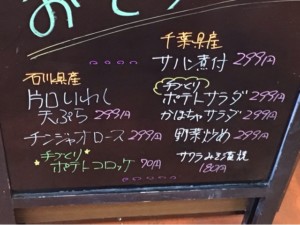 石川県産
片口いわし
天ぷら 299円
チンジャオロース 299円
手づくり
ポテトコロッケ 90円
千葉県産
サバ煮付 299円
手づくり
ポテトサラダ 299円
かぼちゃサラダ 299円
野菜炒め 299円
180円